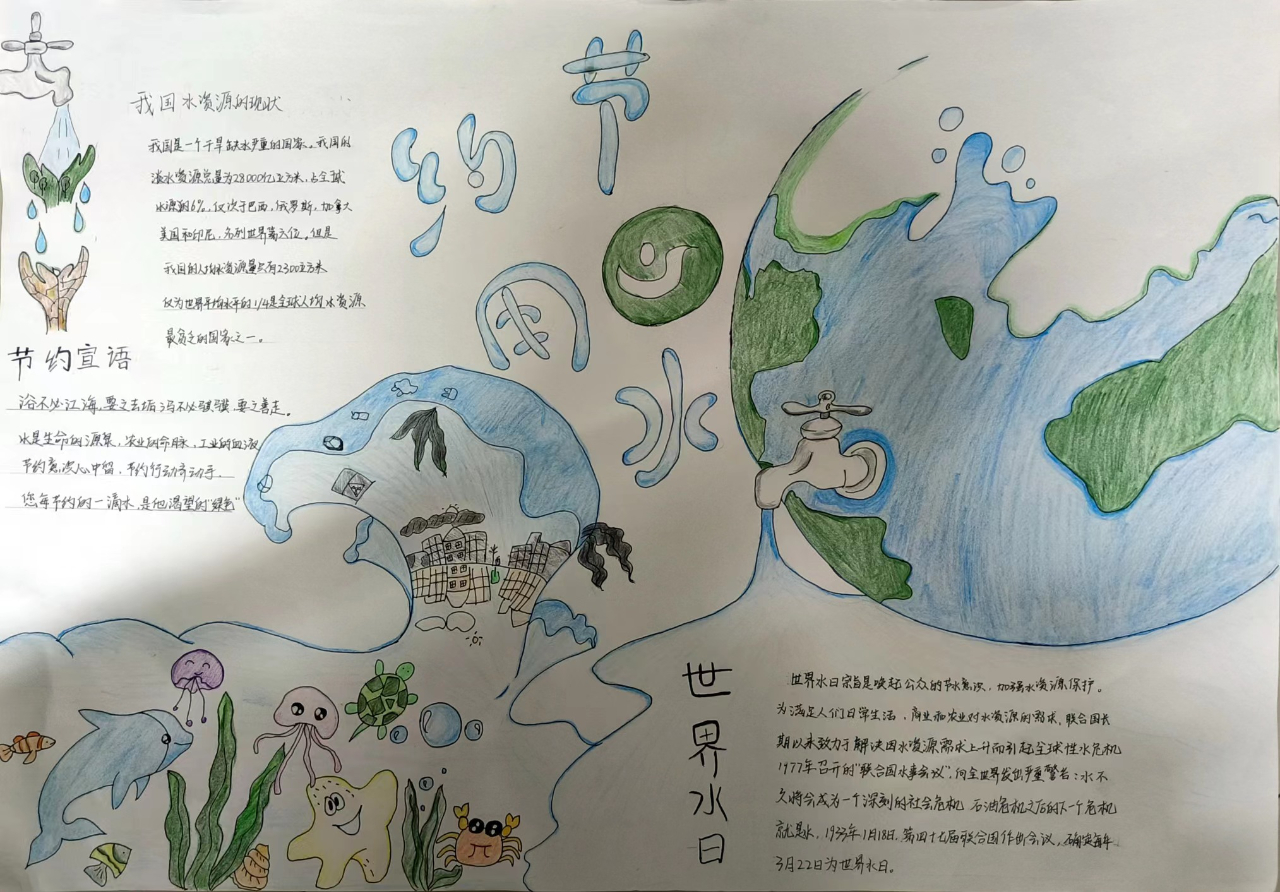 节约用水
我国水资源的现状
我国是一个干旱缺水严重的国家。我国的
淡水资源总量为28000亿立方米,占全球
水资源的6%,仅次于巴西,俄罗斯,加拿大
美国和印尼,名列世界第六位。但是
我国的人均水资源量只有2300立方米
仅为世界平均水平的1/4是全球人均水资源
最贫乏的国家之一。
节约宣语
浴不必江海,要之去垢;马不必骐骥,要之善走。
水是生命的源泉,农业的命脉,工业的血液
节约意识心中留,节约行动齐动手
您每节约的一滴水,是他渴望的"绿色"
世界水日
世界水日宗旨是唤起公众的节水意识,加强水资源保护。
为满足人们日常生活,商业和农业对水资源的需求,联合国长
期以来致力于解决因水资源需求上升而引起全球性水危机
1977年召开的"联合国水事会议",向全世界发出严重警告:水不
久将会成为一个深刻的社会危机,石油危机之后的下一个危机
就是水,1993年1月18日,第四十七届联合国作出会议,确定每年
3月22日为世界水日。